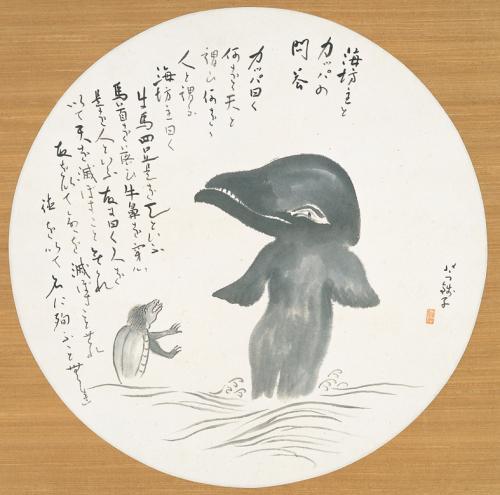 海坊主と
カッパの
問答
カッパ曰く
何をか天と
謂ひ何をか
人と謂ふ
海坊主曰く
牛馬四足是を天といふ
馬首を落ひ牛鼻を穿つ
是を人といふ故に曰く人を
以て天を滅ぼすこと莫れ
故を以て命を滅ぼすこと莫れ
を以て名に殉ふこと